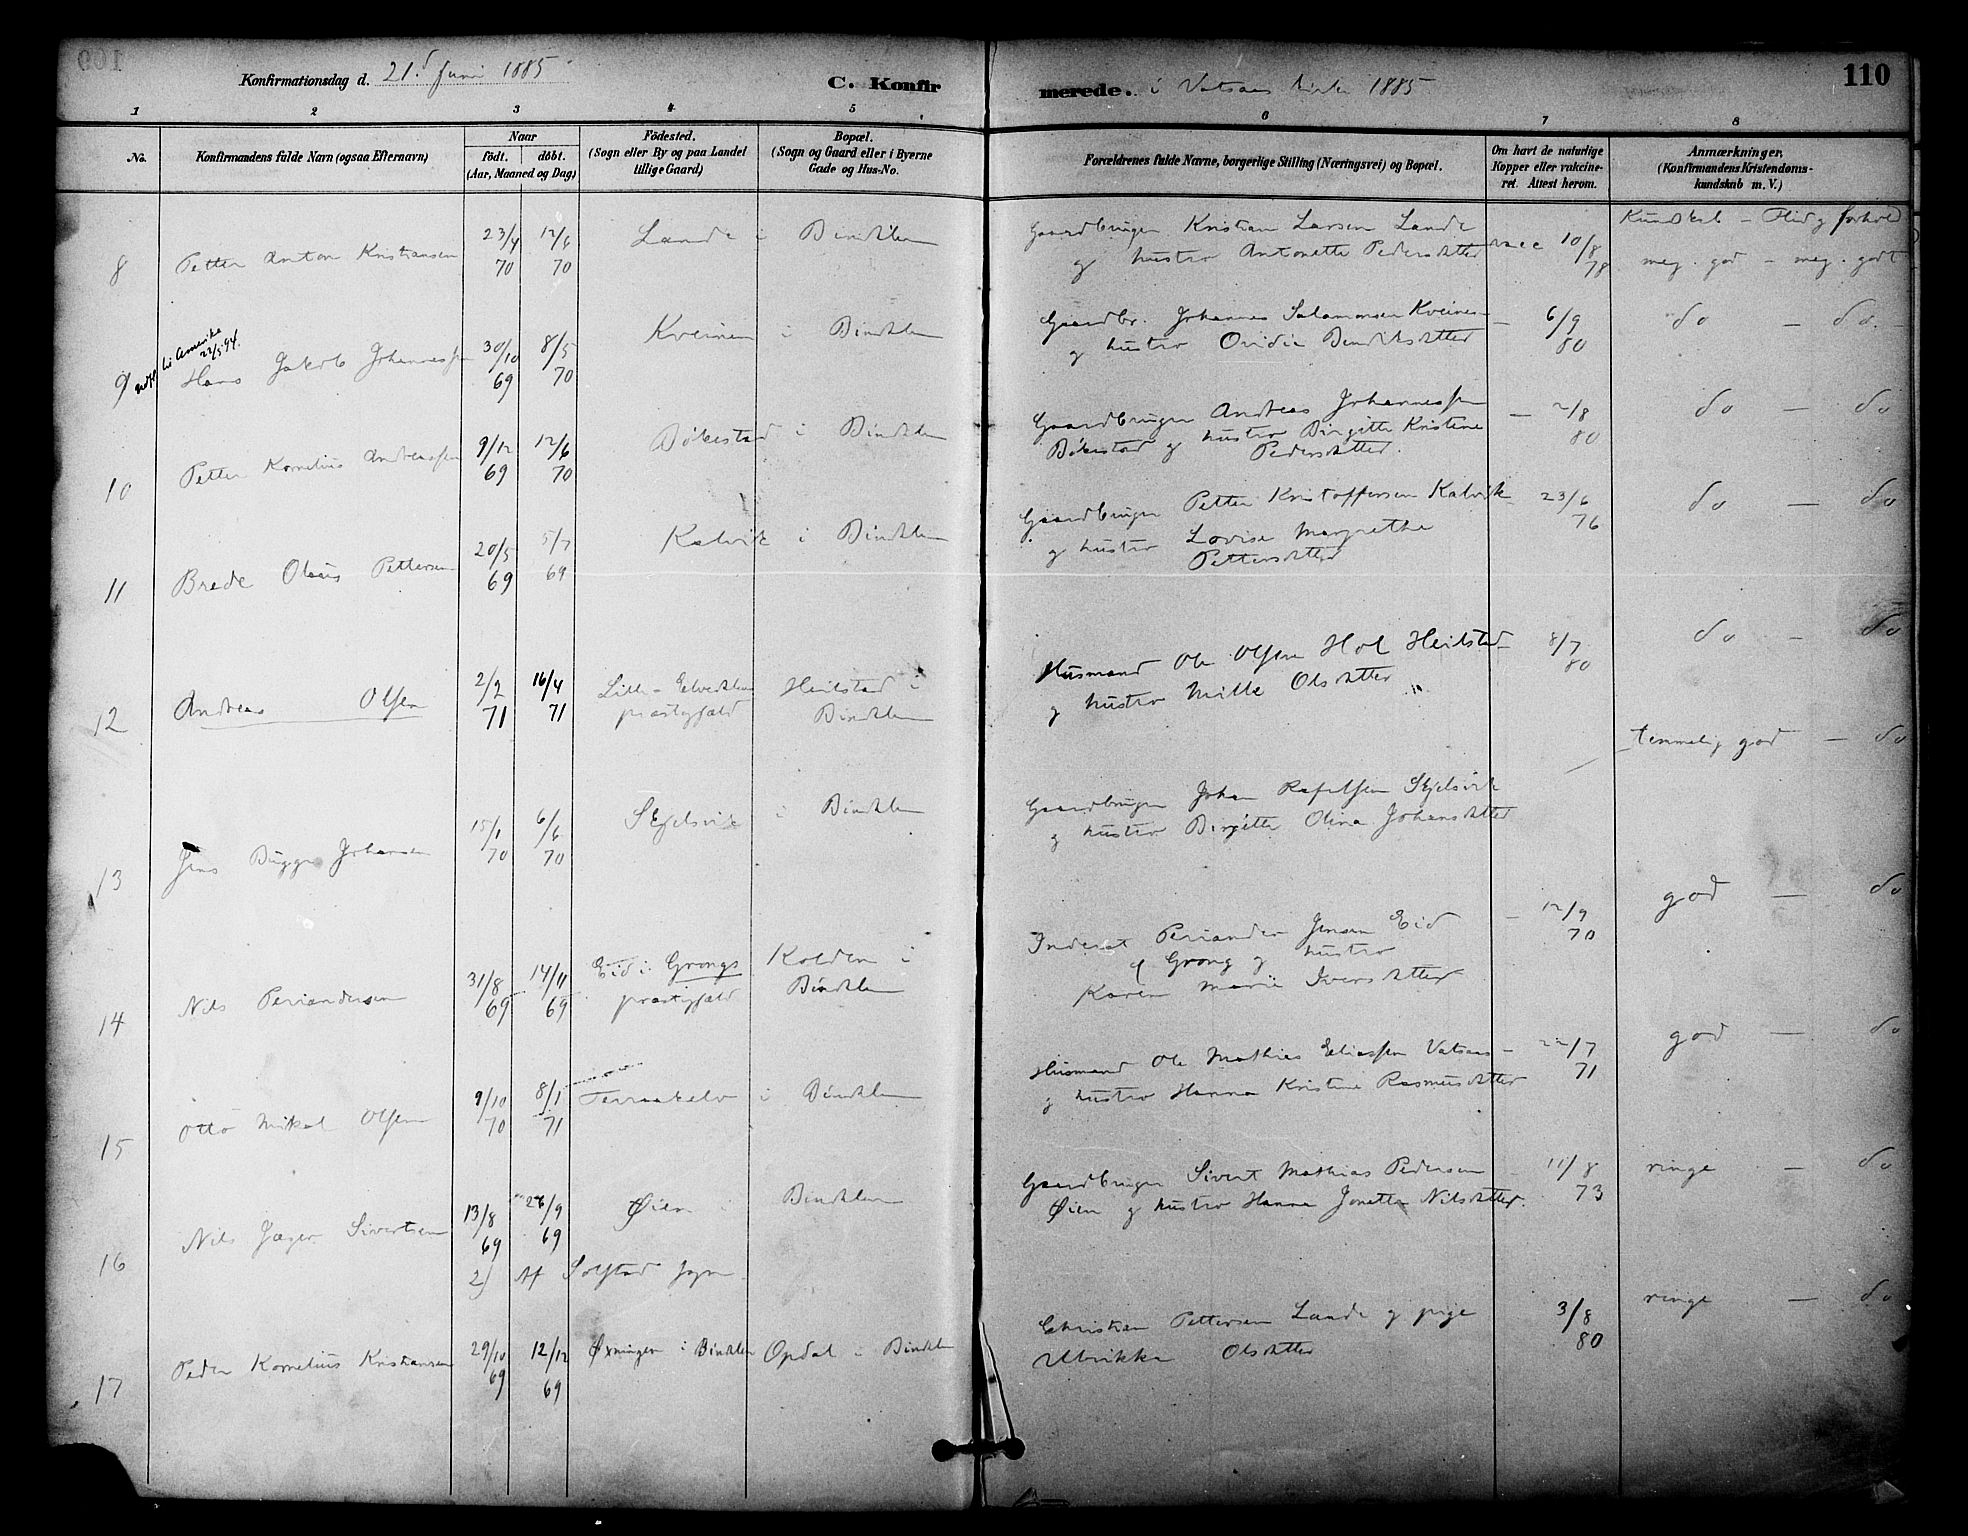 110
Konfirmationsdag d. 21. Juni 1885
C. Konfir
merede. i Vatsaas 1885
1 2 3 4 5 6 7 8
No.
Konfirmandens fulde Navn (ogsaa Efternavn)
Naar
födt. döbt.
(Aar, Maaned og Dag)
Födested.
(Sogn eller By og paa Landet
tillige Gaard)
Bopæl.
(Sogn og Gaard eller i Byerne
Gade og Hus-No.
Forældrenes fulde Navne, borgerlige Stilling (Næringsvei) og Bopæl.
Om havt de naturlige
Kopper eller vakcine-
ret. Attest herom.
Anmærkninger,
(Konfirmandens Kristendoms-
kundskab m. V.)
Kundskab - Flid og forhold
8 Petter Anton Kristiansen 23/4 70 12/6 70 Lande i Bindalen
Gaardbruger Kristian Larsen Lande
og hustro Antonette Pedersdatter vacc 10/8 78 meg. god - meg. godt
til Amerika
22/5 94.
9 Hans Jakob Johannessen 30/10 69 8/5 70 Kveinen i Bindalen
Gaardbr. Johannes Salamonsen Kveinen
og hustro Ovidia Bendiksdatter - 6/9 80 do - do.
10 Petter Kornelius Andreassen 9/12 69 12/6 70 Bökestad i Bindalen
Gaardbruger Andreas Johannessen
Bökestad og hustro Birgitte Kristine
Pedersdatter. - 2/8 80 do - do
11 Brede Olaus Pettersen 20/5 69 5/7 69 Kalvik i Bindalen
Gaardbruger Petter Kristoffersen Kalvik
og hustro Lovise Margrethe
Pettersdatter 23/6 76 do - do
12 Andreas Olsen 2/2 71 16/4 71 Lille- Elvedalen
præstegjeld Heilstad i
Bindalen
Husmand Ole Olsen Hol Heilstad
og hustro Mille Olsdatter 8/7 80 do - do
13 Jens Bugge Johansen 15/1 70 6/6 70 Skjelsvik i Bindalen
Gaardbruger Johan Rafelsen Skjelsvik
og hustro Birgitte Olina Johansdatter temmelig god - do
14 Nils Periandersen 31/8 69 14/11 69 Eid i Grongs
præstegjeld Kolden i
Bindalen
Inderst Periander Jensen Eid
i Grong og hustro
Karen Marie Iversdatter - 12/9 70 god - do
15 Otto Mikal Olsen 9/10 70 8/1 71 Terraakelv i Bindalen
Husmand Ole Mathias Eliassen Vatsaas
og hustro Hanna Kristine Rasmusdatter - 22/7 71 god - do
16 Nils Jæger Sivertsen 13/8 69 26/9 69 Øien i Bindalen
Gaardbruger Sivert Mathias Pedersen
Øien og hustro Hanna Jonetta Nilsdatter. 11/8 73 ringe - do
2) Af Solstad sogn
17 Peder Kornelius Kristiansen 29/10 69 12/12 69 Øxningen i Bindalen Opdal i Bindalen
Christian Pettersen Lande og pige
Ulrikka Olsdatter 3/8 80 ringe - do